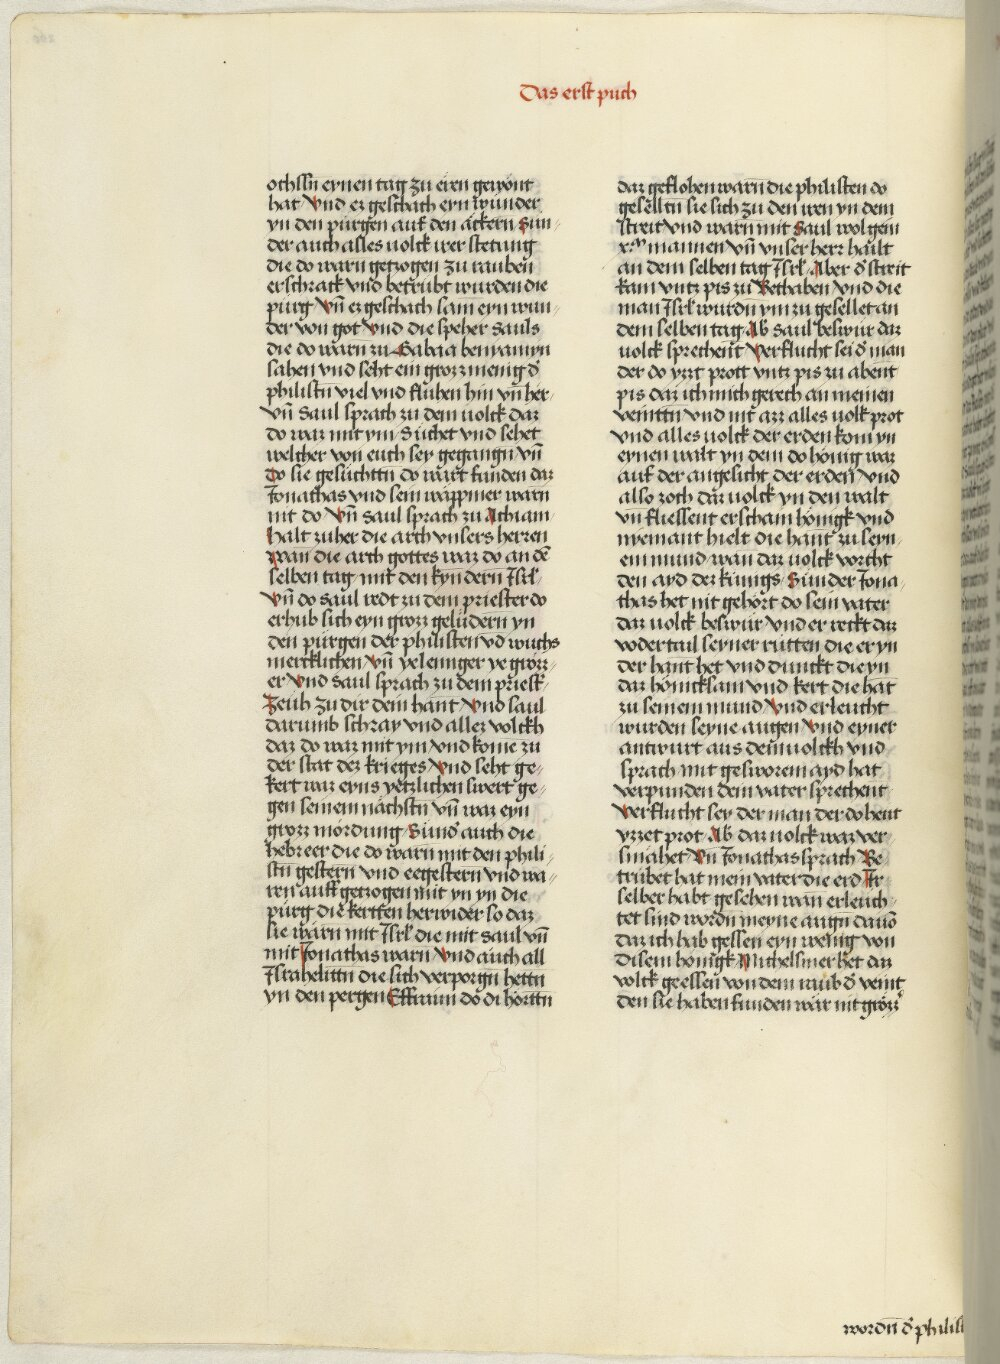 Das erst puch
ochssn̄ eynen tag zu eren gewont
hat Vnd ez geschach eyn wunder
yn den purgen auf den äckern Sun
der auch alles uolck wer stetung
die do warn getzogen zu rauben
erschrack vnd betrubt wurden die
purg Vn̄ ez geschach sam eyn wun
der von got Vnd die speher Sauls
die do warn zu Gabaa beniamyn
sahen vnd seht ein grozz menig d̓
philistn̄ viel vnd fluhen hin vn̄ her
Vn̄ Saul sprach zu dem uolck daz
do waz mit ym Suchet vnd sehet
welcher von euch sey gegangn̄ Vn̄
Do sie gesuchttn̄ do wart funden daz
Jonathas vnd sein wappner warn
nit do Vn̄ Saul sprach zu Achiam
halt zuher die arch vnsers herren
wan die arch gottes waz do an dē
selben tag mit den kyndern Isrl̓
Vn̄ do Saul redt zu dem priester do
erhub sich eyn grozz gelüdern yn
den purgen der philisten vd wuchs
mercklichen Vn̄ ye lenniger ye grozz
er Vnd Saul sprach zu dem priest
Zeuh zu dir dem hant Vnd Saul
darumb schray vnd allez volckh
daz do waz mit ym vnd kome zu
der stat dez krieges Vnd seht ge
kert waz eyns yetzlichen swert ge
gen seinem nächstn̄ Vn̄ waz eyn
grozz mordung Sund̓ auch die
hebreer die do warn mit den phili
stn̄ gestern vnd eegestern vnd wa
ren auff getzogen mit yn yn die
purg die kertten herwider so daz
sie warn mit Isrl̓ die mit Saul vn̄
mit Jonathas warn Vnd auch all
Israhelittn̄ die sich verporgn̄ hettn
yn den pergen Effraim do di hörttn̄
daz geflohen warn die philisten do
geselltn̄ sie sich zu den iren yn dem
streit vnd warn mit Saul wol gein
x.ᵐ mannen vn̄ vnser herr hailt
an dem selben tag Isrl̓ Aber d̓ streit
kam vntz pis zu Bethaben vnd die
man Isrl̓ wurdn̄ ym zu gesellet an
dem selben tag Ab Saul beswur daz
uolck sprechent Verflucht sei d̓ man
der do yzzt prott vntz pis zu abent
pis daz ich mich gerech an meinen
veinttn̄ vnd nit azz alles uolk prot
vnd alles uolck der erden kom yn
eynen walt yn dem do hönig waz
auf der angesicht der erden vnd
also zoch daz uolck yn den walt
vn̄ fliessent erscham hönigk vnd
nyemant hielt die hant zu seyn
em mund wan daz uolck vorcht
den ayd dez kunigs Sunder Jona
thas het nit gehört do sein vater
daz uolck beswur vnd er reckt daz
vodertail seyner rutten die er yn
der hant het vnd dunckt die yn
daz höncksam vnd kert die hāt
zu seinem mund Vnd erleucht
wurden seyne augen Vnd eyner
antwurt aus dem uolckh vnd
sprach mit gesworem ayd hat
verpunden dem vater sprechent
Verflucht sey der man der do heut
yzzet prot Ab daz uolck waz ver
smahet Vn̄ Jonathas sprach Be
trübet hat mein vater die erd Ir
selber habt gesehen wan erleuch
tet sind wordn̄ meyne augn̄ dauō
daz ich hab gessen eyn wenig von
disem honigk Michelsmer het daz
volck geessen von dem raub d̓ veint
den sie haben funden wār nit grözz
wordn̄ d̓ philist